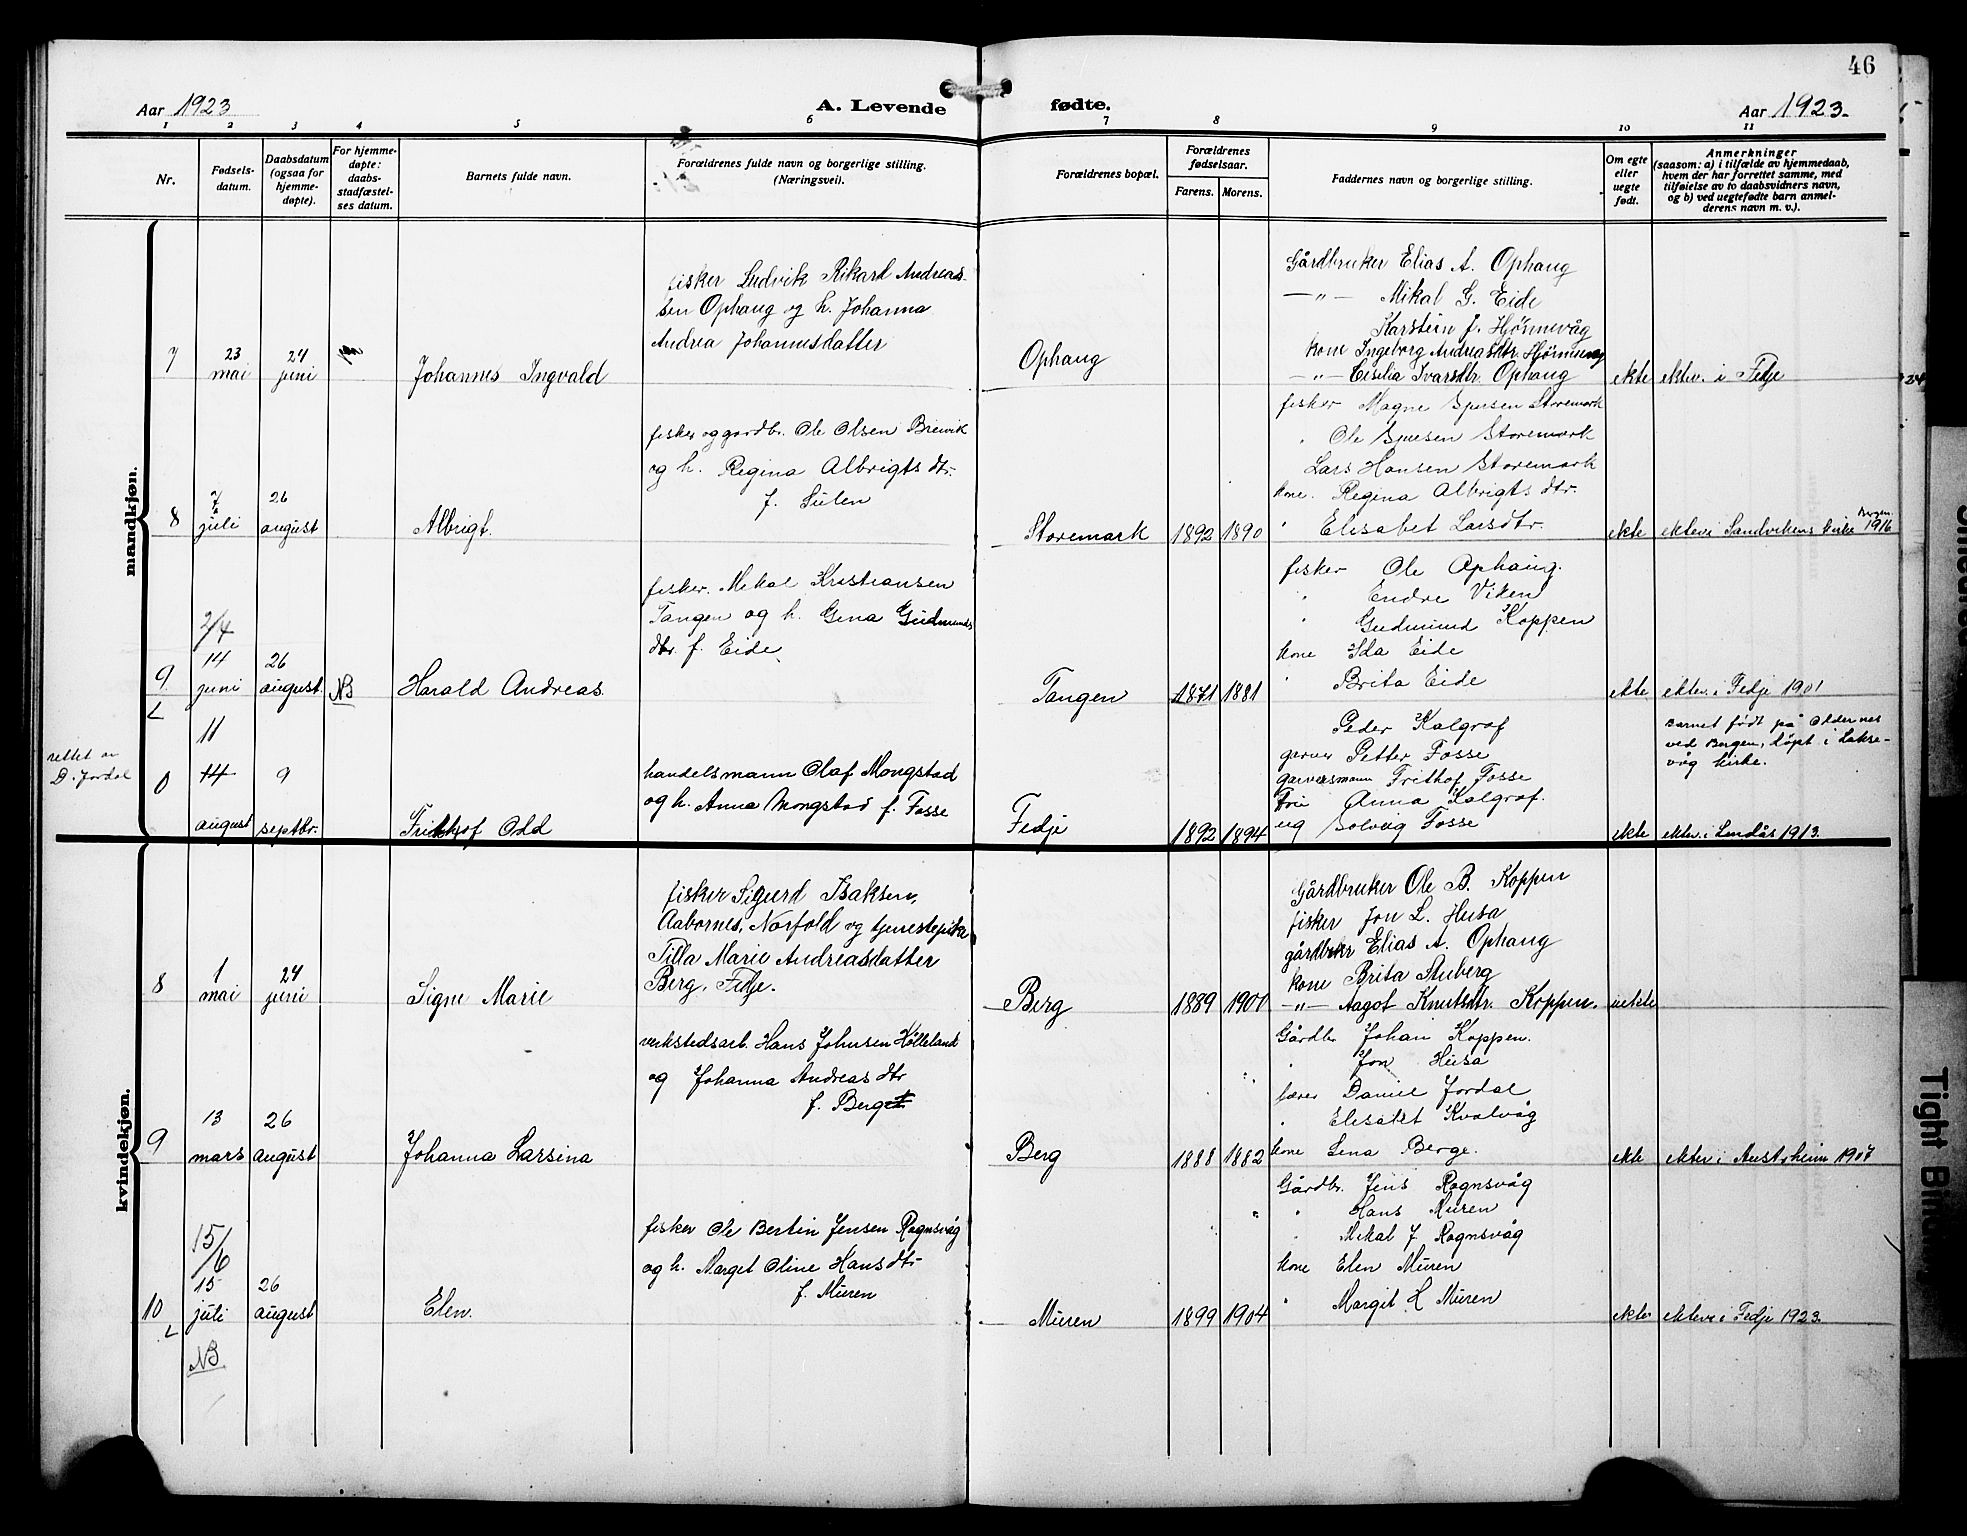 46
Aar 1923
A. Levende fødte.
Aar 1923.
1 2 3 4 5 6 7 8 9 10 11
Nr.
Fødsels-
datum.
Daabsdatum
(ogsaa for
hjemme-
døpte).
For hjemme-
døpte:
daabs-
stadfæstel-
ses datum.
Barnets fulde navn.
Forældrenes fulde navn og borgerlige stilling.
(Næringsvei).
Forældrenes bopæl.
Forældrenes
fødselsaar.
Farens. Morens.
Faddernes navn og borgerlige stilling.
Om egte
eller
uegte
født.
Anmerkninger
(saasom: a) i tilfælde av hjemmedaab,
hvem der har forrettet samme, med
tilføielse av to daabsvidners navn,
og b) ved uegtefødte barn anmel-
derens navn m. v.).
mandkjøn.
7
23
mai
24
juni
Johannes Ingvald
fisker Ludvik Rikard Andreas-
sen Ophaug og h. Johanna
Andrea Johannesdatter
Ophaug
Gårdbruker Elias A. Ophaug
— " — Mikal G. Eide
Karstein J. Hjønnevåg
kone Ingeborg Andreasdtr. Hjønnevåg
— " — Cisilia Ivarsdtr. Ophaug
ekte
ektev. i Fedje
8
juli
26
august
Albrigt.
fisker og gardbr. Ole Olsen Breivik
og h. Regina Albrigts dtr.
f. Sulen
Storemark
1892
1890
fisker Magne Sjursen Storemark
" Ole Sjursen Storemark
Lars Hansen Storemark
kone. Regina Albrigts dtr.
" Elisabet Larsdtr.
ekte
ektev i Sandvikens kirke Bergen 1916
9
2/4
14
juni
26
august.
NB
Harald Andreas.
fisker. Mikal Kristiansen
Tangen og h. Gina Gudmunds
dtr. f. Eide
Tangen
1871
1881
fisker Ole Ophaug.
" Endre Viken
" Gudmund Koppen
kone Ida Eide
" Brita Eide
ekte
ektev. i Fedje 1901
rettet av
D. Jordal
0
11
14
august
9
septbr.
Fridtjof Odd
handelsmann Olaf Mongstad
og h. Anna Mongstad f. Fosse
Fedje
1892
1894
Peder Kalgraf
garver Petter Fosse
garversmann Frithof Fosse
Fru Anna Kalgraf.
ug Solveig Fosse
ekte
Barnet født på Oldernes
ved Bergen, døpt i Lakse-
våg kirke.
ektev. i Lindås 1913.
kvindekjøn.
8
1
mai
24
juni
Signe Marie
fisker Sigurd Isaksen,
Aabornes, Norfold og tjenestepike
Tilla Marie Andreasdatter
Berg, Fedje.
Berg
1889
1900
Gårdbruker Ole B. Koppen
fisker Jon L. Husa
gårdbrkr Elias A. Ophaug
kone Brita Stuberg
— " — Aagot Knutsdtr. Koppen.
uekte
9
13
mars
26
august
Johanna Larsina
verkstedsarb. Hans Johnsen Hølleland
og Johanna Andreas dtr
f. Berg
Berg
1888
1882
Gårdbr Johan Koppen.
" Jon Husa
lærer Daniel Jordal
" Elisabet Kvalvåg
kone Lina Berge.
ekte
ektev i Austrheim 1907
10
15/6
15
juli
NB
26
august
Elen.
fisker Ole Bertin Jensen Rognsvåg
og h. Marget Oline Hans dtr
f. Muren
Muren
1899
1904
Gårdbr. Jens Rognsvåg
" Hans Muren
" Mikal J Rognsvåg
kone Elen Muren
" Margit L Muren
ekte
ektev i Fedje 1923.
Tight Bin